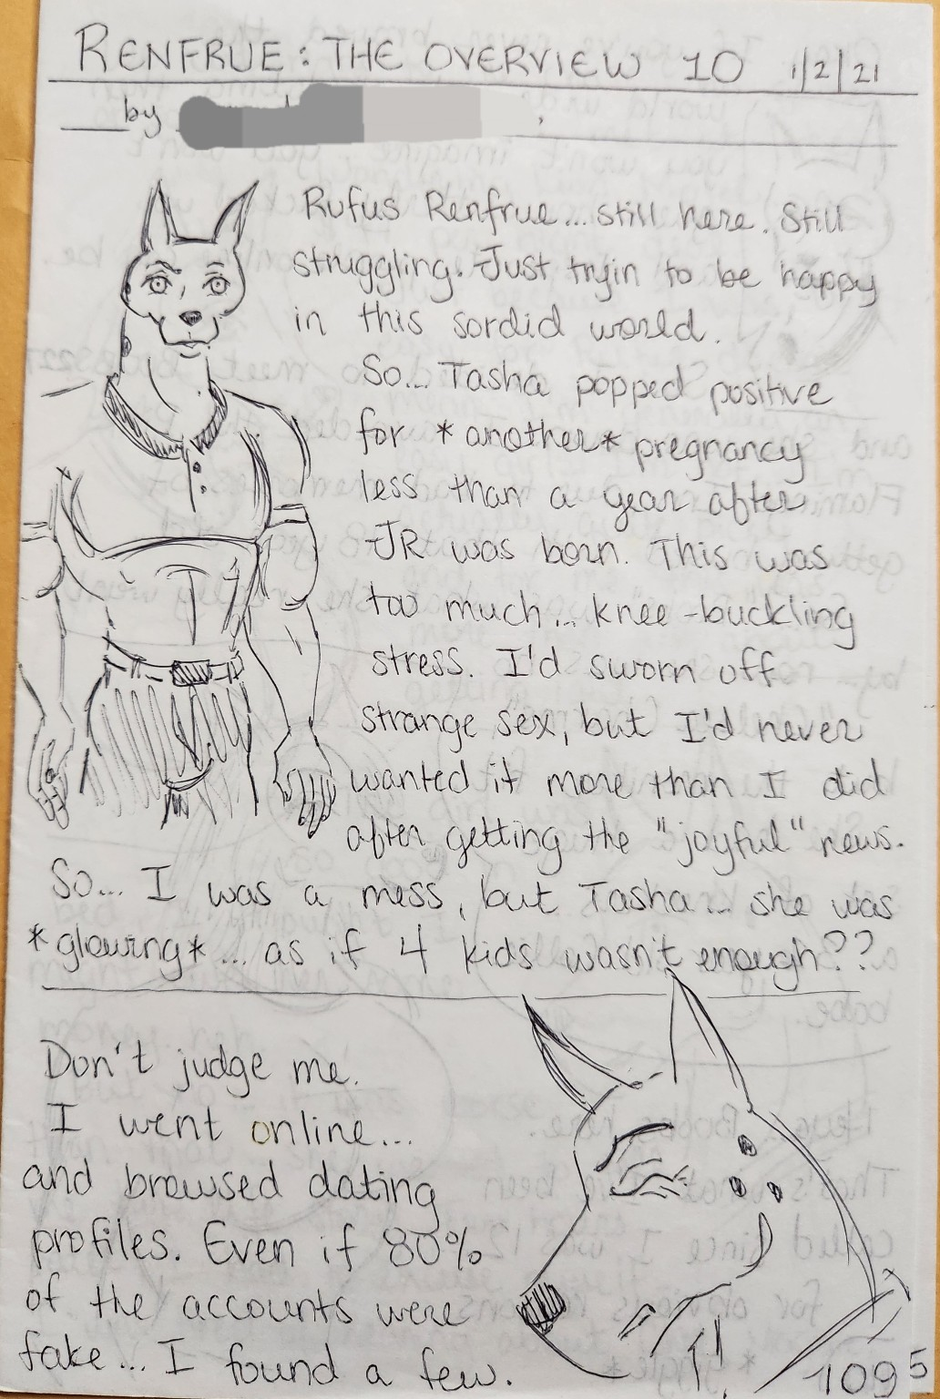 RENFRUE: THE OVERVIEW 10 1/2/21
by
Rufus Renfrue... still here. Still
struggling. Just tryin to be happy
in this sordid world.
So... Tasha popped positive
for *another* pregnancy
less than a year after
JR was born. This was
too much... knee-buckling
stress. I'd sworn off
strange sex, but I'd never
wanted it more than I did
after getting the "joyful" news.
So... I was a mess, but Tasha... she was
*glowing*... as if 4 kids wasn't enough??
Don't judge me.
I went online...
and browsed dating
profiles. Even if 80%
of the accounts were
fake... I found a few.
1095